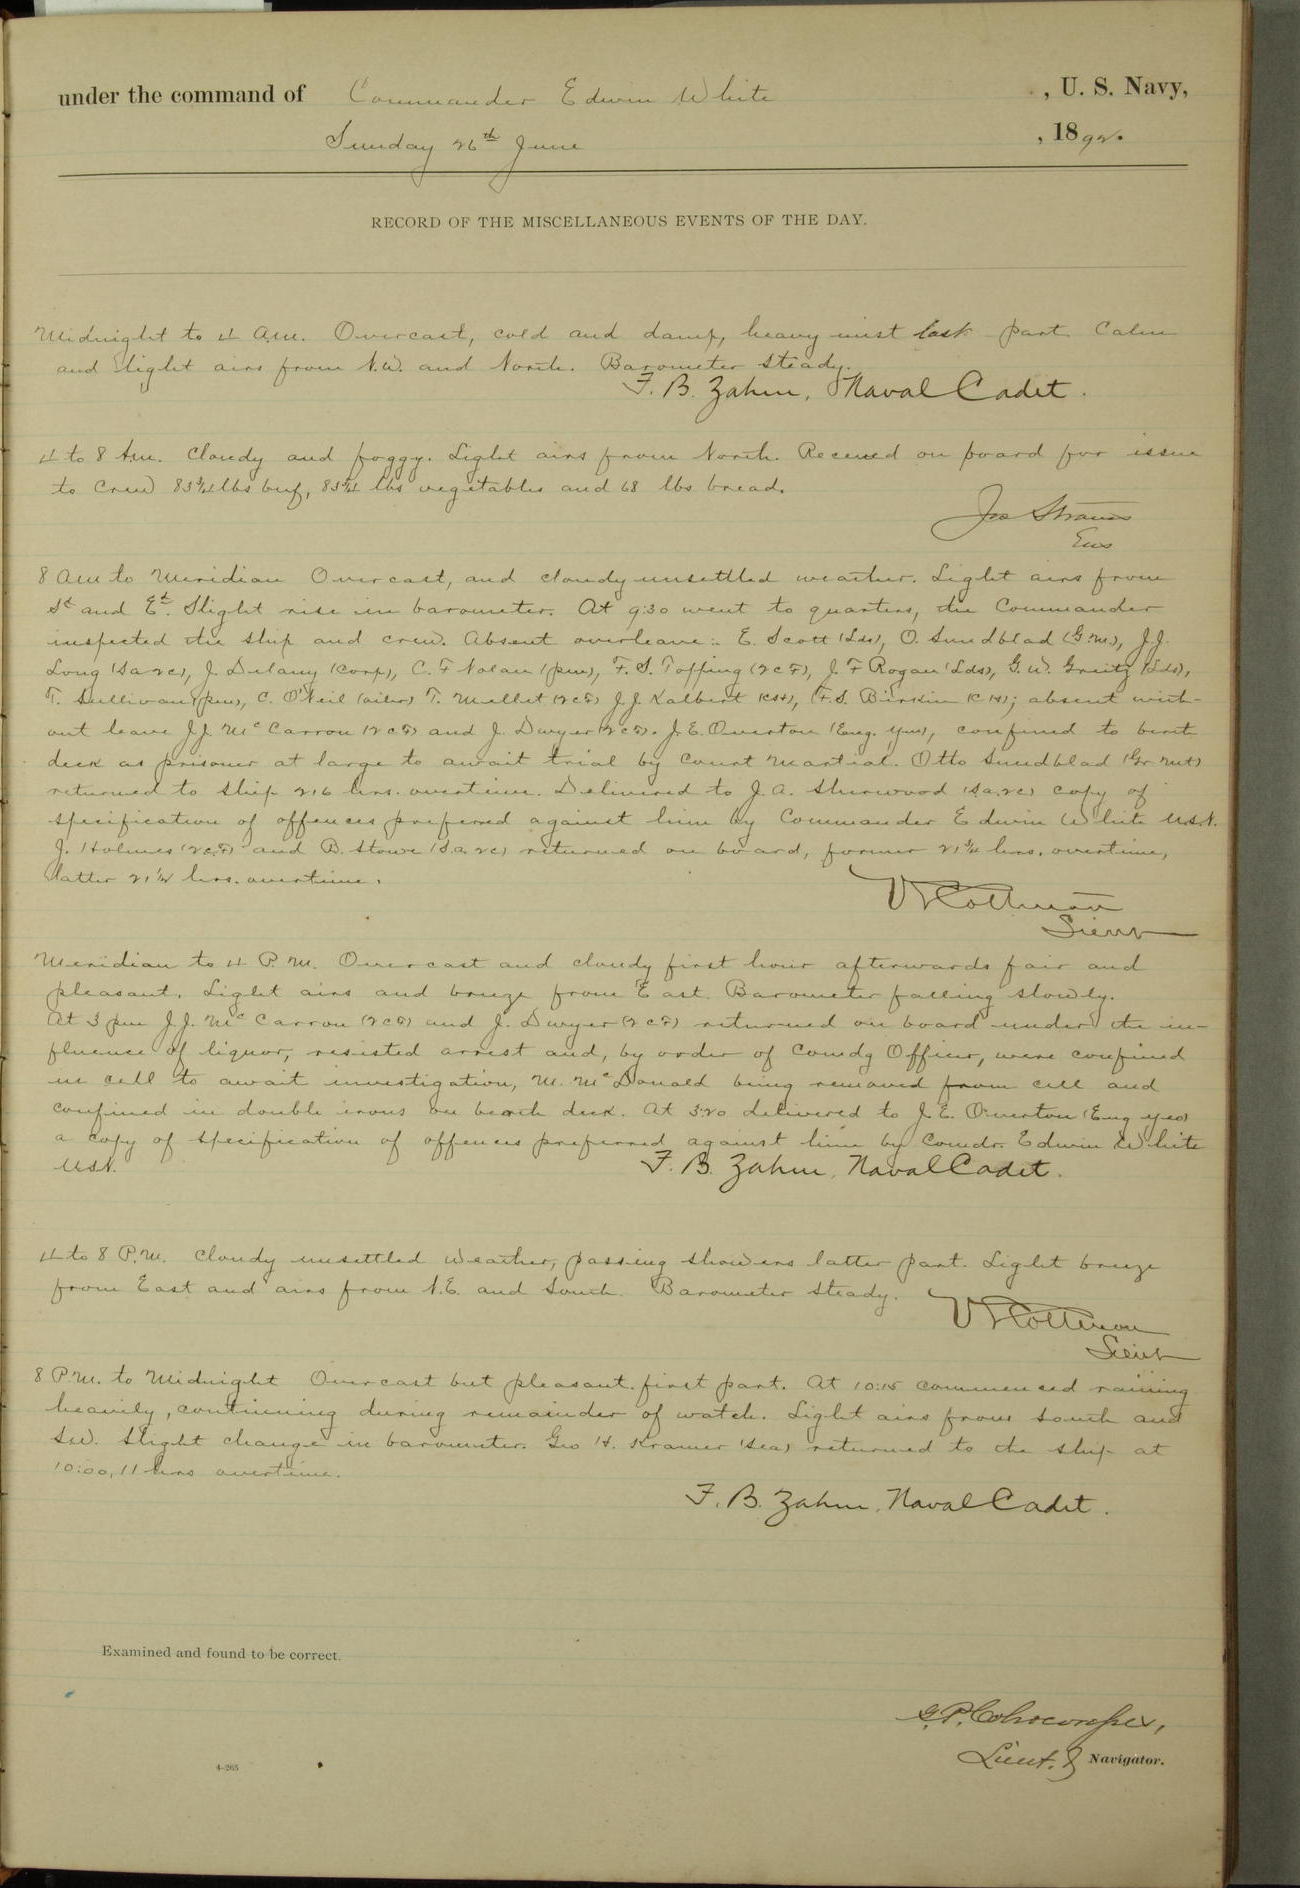 under the command of Commander Edwin White , U. S. Navy,
Sunday 26th June , 1892.
RECORD OF THE MISCELLANEOUS EVENTS OF THE DAY.
Midnight to 4 A.M. Overcast, cold and damp, heavy mist last part. Calm
and light airs from N.W. and North. Barometer steady.
F. B. Zahm, Naval Cadet.
4 to 8 A.M. Cloudy and foggy. Light airs from North. Received on board for issue
to Crew 83¾ lbs beef, 83¾ lbs vegetables and 68 lbs bread.
Jos Strauss
Ens
8 A.M. to Meridian Overcast, and cloudy unsettled weather. Light airs from
Sd and Ed. Slight rise in barometer. At 9:30 went to quarters, the Commander
inspected the ship and crew. Absent overleave:- E. Scott (Lds), O. Sundblad (G.M.), J.J.
Long (Sa 2c), J. Delany (Corp), C. F Nolan (pm), F. S. Topping (2cF), J. F Rogan (Lds), G. W. Greitz (Lds),
T. Sullivan (pm), C. O'Neil (oiler) T. Mellet (2cF) J J Kalbert (CH), (F. S. Birkin (CH); absent with-
out leave J J. McCarron (2cF) and J. Dwyer (2cF). J. E. Overton (Eng. Yeo), confined to berth
deck as prisoner at large to await trial by Court Martial. Otto Sundblad (Gr. Mt)
returned to ship 216 hrs. overtime. Delivered to J. A. Sherwood (Sa. 2c) copy of
specification of offences preferred against him by Commander Edwin White U.S.N.
J. Holmes (2cF) and B. Stowe (Sa. 2c) returned on board, former 21¾ hrs. overtime,
latter 21¼ hrs. overtime.
V S Cottman
Lieut
Meridian to 4 P.M. Overcast and cloudy first hour afterwards fair and
pleasant. Light airs and breeze from East. Barometer falling slowly.
At 3 pm J. J. McCarron (2cF) and J. Dwyer (2cF) returned on board under the in-
fluence of liquor, resisted arrest and, by order of Comdg Officer, were confined
in cell to await investigation, M. McDonald being removed from cell and
confined in double irons on berth deck. At 3:20 delivered to J. E. Overton (Eng yeo)
a copy of specification of offences preferred against him by Comdr. Edwin White
U.S.N.
F. B. Zahm, Naval Cadet.
4 to 8 P.M. Cloudy unsettled weather, passing showers latter part. Light breeze
from East and airs from N.E. and South. Barometer steady.
V S Cottman
Lieut
8 P.M. to Midnight Overcast but pleasant first part. At 10:15 commenced raining
heavily, continuing during remainder of watch. Light airs from South and
SW. Slight change in barometer. Geo H. Kramer (Sea) returned to the ship at
10:00, 11 hrs overtime.
F. B. Zahm, Naval Cadet.
Examined and found to be correct.
G. P. Colvocoresses,
Lieut. & Navigator.
4-265